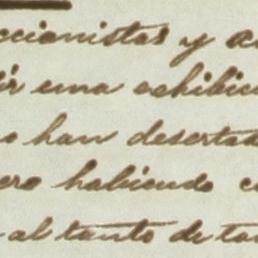 ccionistas y a
dir una exhibic
o han desertad
ero habiendo c
al tanto de ta